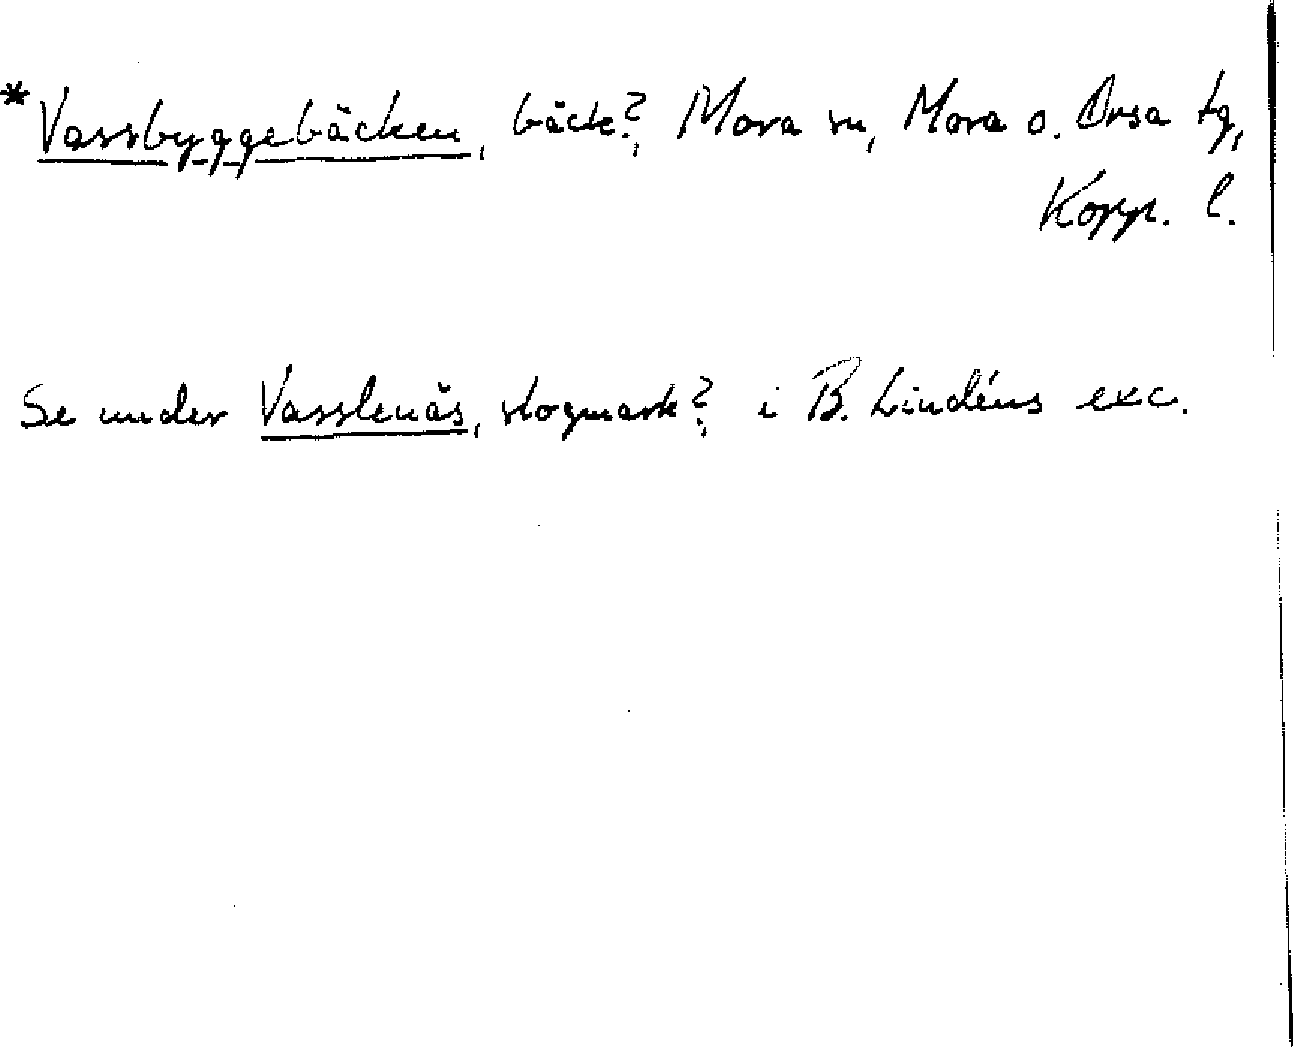 *Vassbyggebäcken, bäck?, Mora sn, Mora o. Orsa tg,
Kopp. l.
Se under Vasslenäs, skogmark?, i B. Lindéns exc.